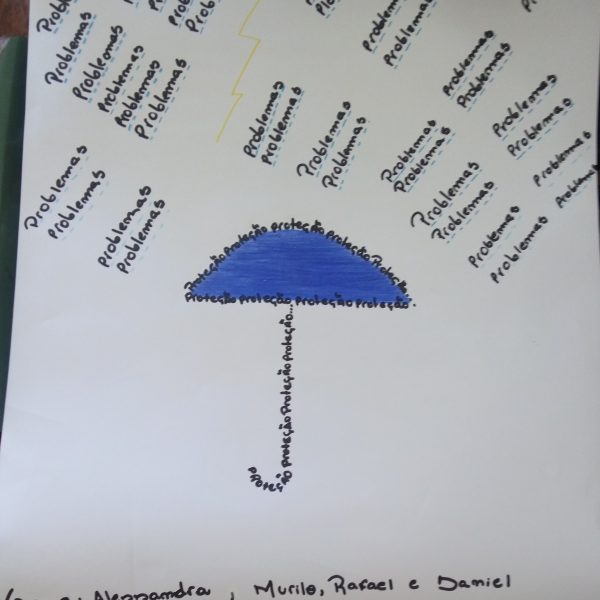 Problemas
Problemas
Problemas
Problemas
Problemas
Problemas
Problemas
Problemas
Problemas
Problemas
Problemas
Problemas
Problemas
Problemas
Problemas
Problemas
Problemas
Problemas
Problemas
Problemas
Problemas
Problemas
Problemas
Problemas
Problemas
Problemas
Problemas
Problemas
Problemas
Problemas
Problemas
Problemas
Proteção Proteção proteção Proteção Proteção...
Proteção proteção Proteção Proteção.
Proteção Proteção Proteção Proteção...
Alessandra, Murilo, Rafael e Daniel